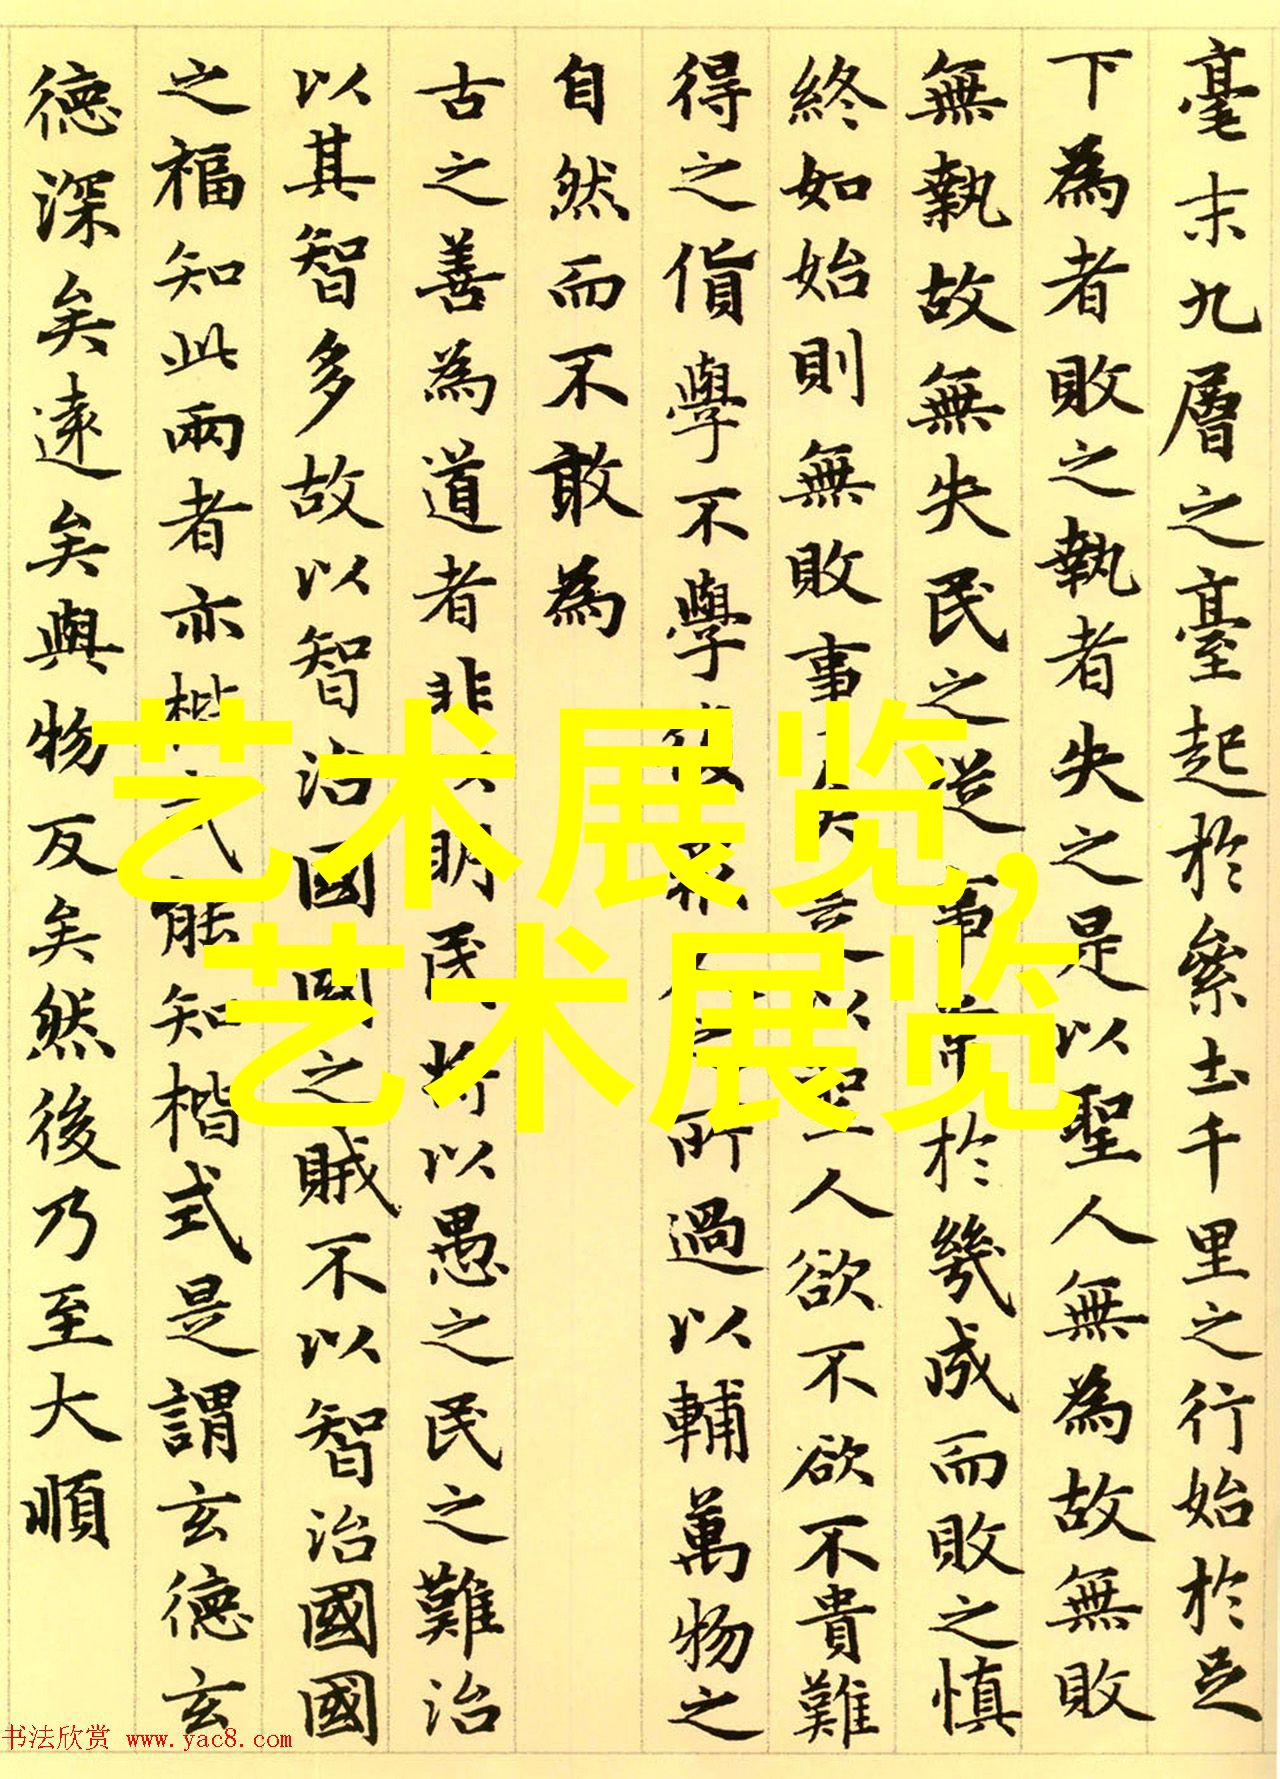 毫末九層之臺起於絫土千里之行始於足
下為者敗之執者失之是以聖人無為故無敗
無執故無失民之從事常於幾成而敗之慎
終如始則無敗事矣是以聖人欲不欲不貴難
得之貨學不學復眾人之所過以輔萬物之
自然而不敢為
古之善為道者非以明民將以愚之民之難治
以其智多故以智治國國之賊不以智治國國
之福知此兩者亦楷式能知楷式是謂玄德玄
德深矣遠矣與物反矣然後乃至大順
艺术展览,
艺术展览
书法欣赏 www.yac8.com